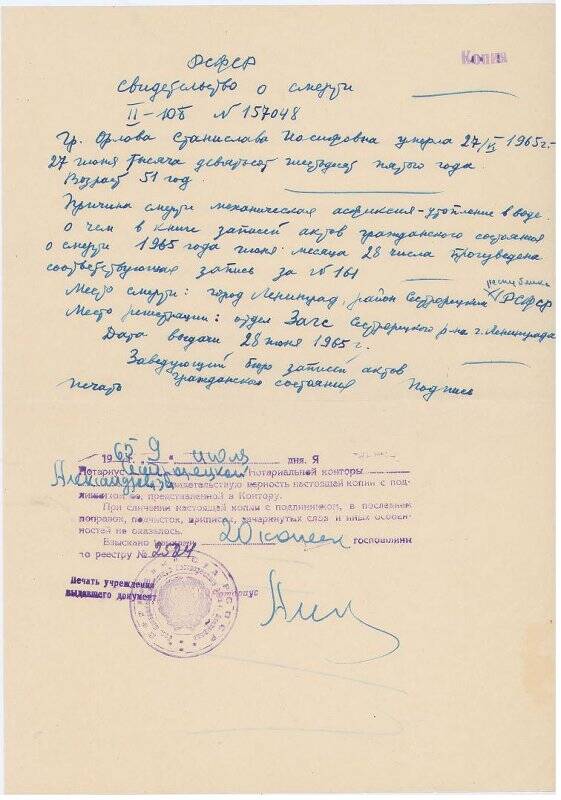 Копия
РСФСР
Свидетельство о смерти
II-ЮБ N 157048
Гр. Орлова Станислава Иосифовна умерла 27/VI 1965г.
27 июня тысяча девятьсот шестьдесят пятого года.
Возраст 51 год.
Причина смерти механическая асфиксия-утопление в воде.
о чем в книге записей актов гражданского состояния
о смерти 1965 года июня месяца 28 числа произведена
соответствующая запись за N 161
республика
Место смерти: город Ленинград, район Сестрорецкий, РСФСР
Место регистрации: отдел Загс Сестрорецкого р-на г. Ленинграда
Дата выдачи 28 июня 1965 г.
Заведующий бюро записей актов
печать гражданского состояния Подпись
1965 г. 9 июля дня. Я
Нотариус Сестрорецкой Нотариальной конторы
Александрова
свидетельствую верность настоящей копии с под-
линником, представленной в Контору.
При сличении настоящей копии с подлинником, в последнем
поправок, подчисток, приписок, зачеркнутых слов и иных особен-
ностей не оказалось.
Взыскано 20 копеек госпошлины
по реестру № 2524
Печать учреждения
выдавшего документ
Нотариус